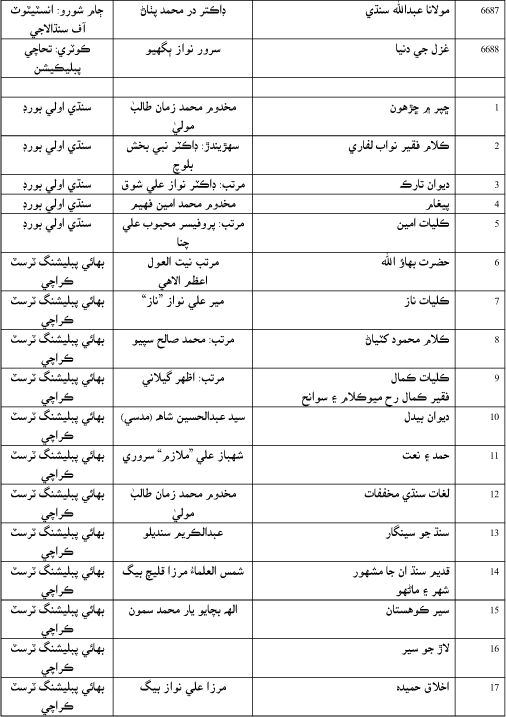 6687 مولانا عبدالله سنڌي ڊاڪٽر در محمد پٺاڻ ڄام شورو: انسٽيٽيوٽ
آف سنڌالاجي
6688 غزل جي دنيا سرور نواز ٻگهيو ڪوٽري: تحاچي
پبليڪيشن
1 ڇپر ۾ ڇڙهون مخدوم محمد زمان طالب سنڌي ادبي بورڊ
موليٰ
2 ڪلام فقير نواب لغاري سهڙيندڙ: ڊاڪٽر نبي بخش سنڌي اولي بورڊ
بلوچ
3 ديوان تارڪ مرتب: ڊاڪٽر نواز علي شوق سنڌي اولي بورڊ
4 پيغام مخدوم محمد امين فهيم سنڌي اولي بورڊ
5 ڪليات امين مرتب: پروفيسر محبوب علي سنڌي اولي بورڊ
چنا
6 حضرت بهاؤ الله مرتب نيت العول بهائي پبليشنگ ٽرسٽ
اعظم الاهي ڪراچي
7 ڪليات ناز مير علي نواز ”ناز“ بهائي پبليشنگ ٽرسٽ
ڪراچي
8 ڪلام محمود کٽياڻ مرتب: محمد صالح سپيو بهائي پبليشنگ ٽرسٽ
ڪراچي
9 ڪليات ڪمال مرتب: اظهر گيلاني بهائي پبليشنگ ٽرسٽ
فقير ڪمال رح ميوڪلام ۽ سوانح ڪراچي
10 ديوان بيدل سيد عبدالحسين شاهه (مدسي) بهائي پبليشنگ ٽرسٽ
ڪراچي
11 حمد ۽ نعت شهباز علي ”ملازم“ سروري بهائي پبليشنگ ٽرسٽ
ڪراچي
12 لغات سنڌي مخففات مخدوم محمد زمان طالب بهائي پبليشنگ ٽرسٽ
موليٰ ڪراچي
13 سنڌ جو سينگار عبدالڪريم سنديلو بهائي پبليشنگ ٽرسٽ
ڪراچي
14 قديم سنڌ ان جا مشهور شمس العلماءُ مرزا قليچ بيگ بهائي پبليشنگ ٽرسٽ
شهر ۽ ماڻهو ڪراچي
15 سير ڪوهستان الهہ بچايو يار محمد سمون بهائي پبليشنگ ٽرسٽ
ڪراچي
16 لاڙ جو سير بهائي پبليشنگ ٽرسٽ
ڪراچي
17 اخلاق حميده مرزا علي نواز بيگ بهائي پبليشنگ ٽرسٽ
ڪراچي